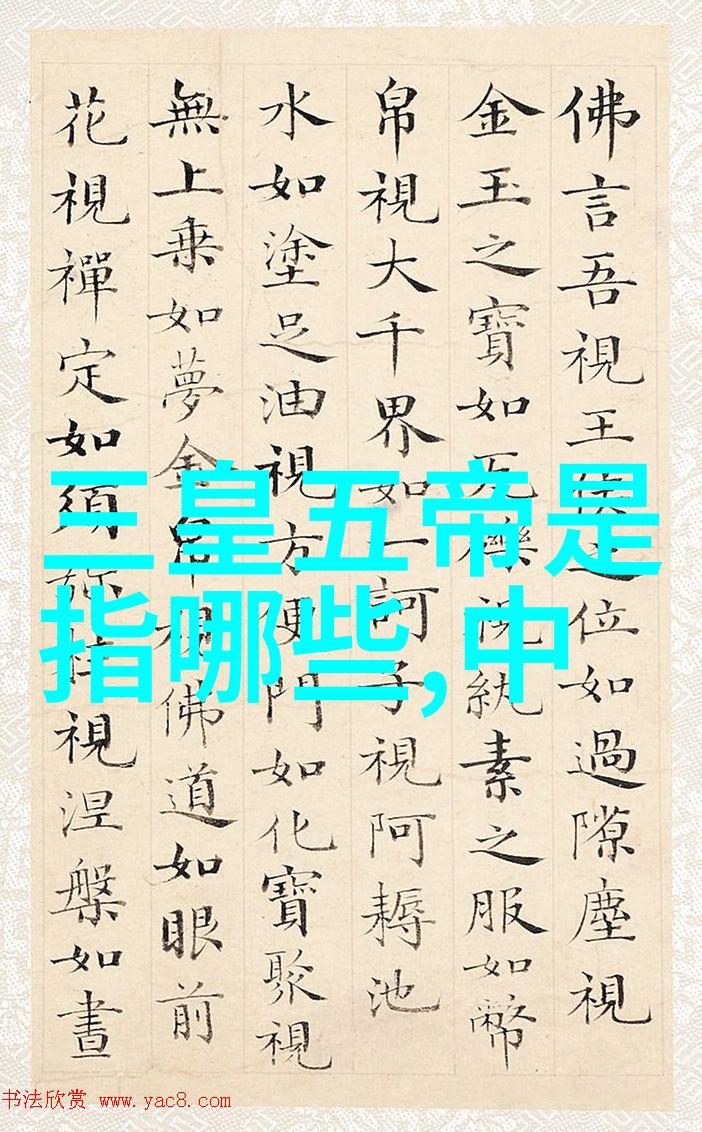 佛言吾視王侯之位如過隙塵視
金玉之寶如瓦礫視紈素之服如幣
帛視大千界如一訶子視阿耨池
水如塗足油視方便門如化寶聚視
無上乗如夢金帛視佛道如眼前
花視禪定如須弥柱視涅槃如晝
三皇五帝是
指哪些,中
书法欣赏 www.yac8.com